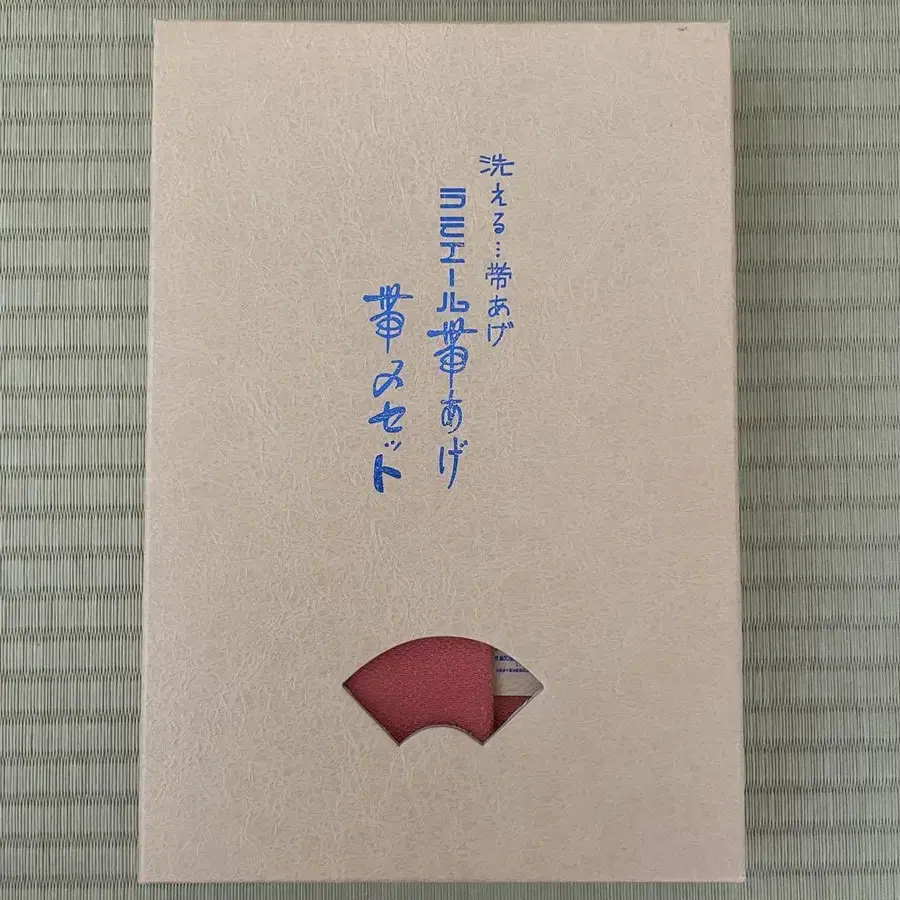 洗える…帯あげ
ラモエール帯あげ
帯〆セット